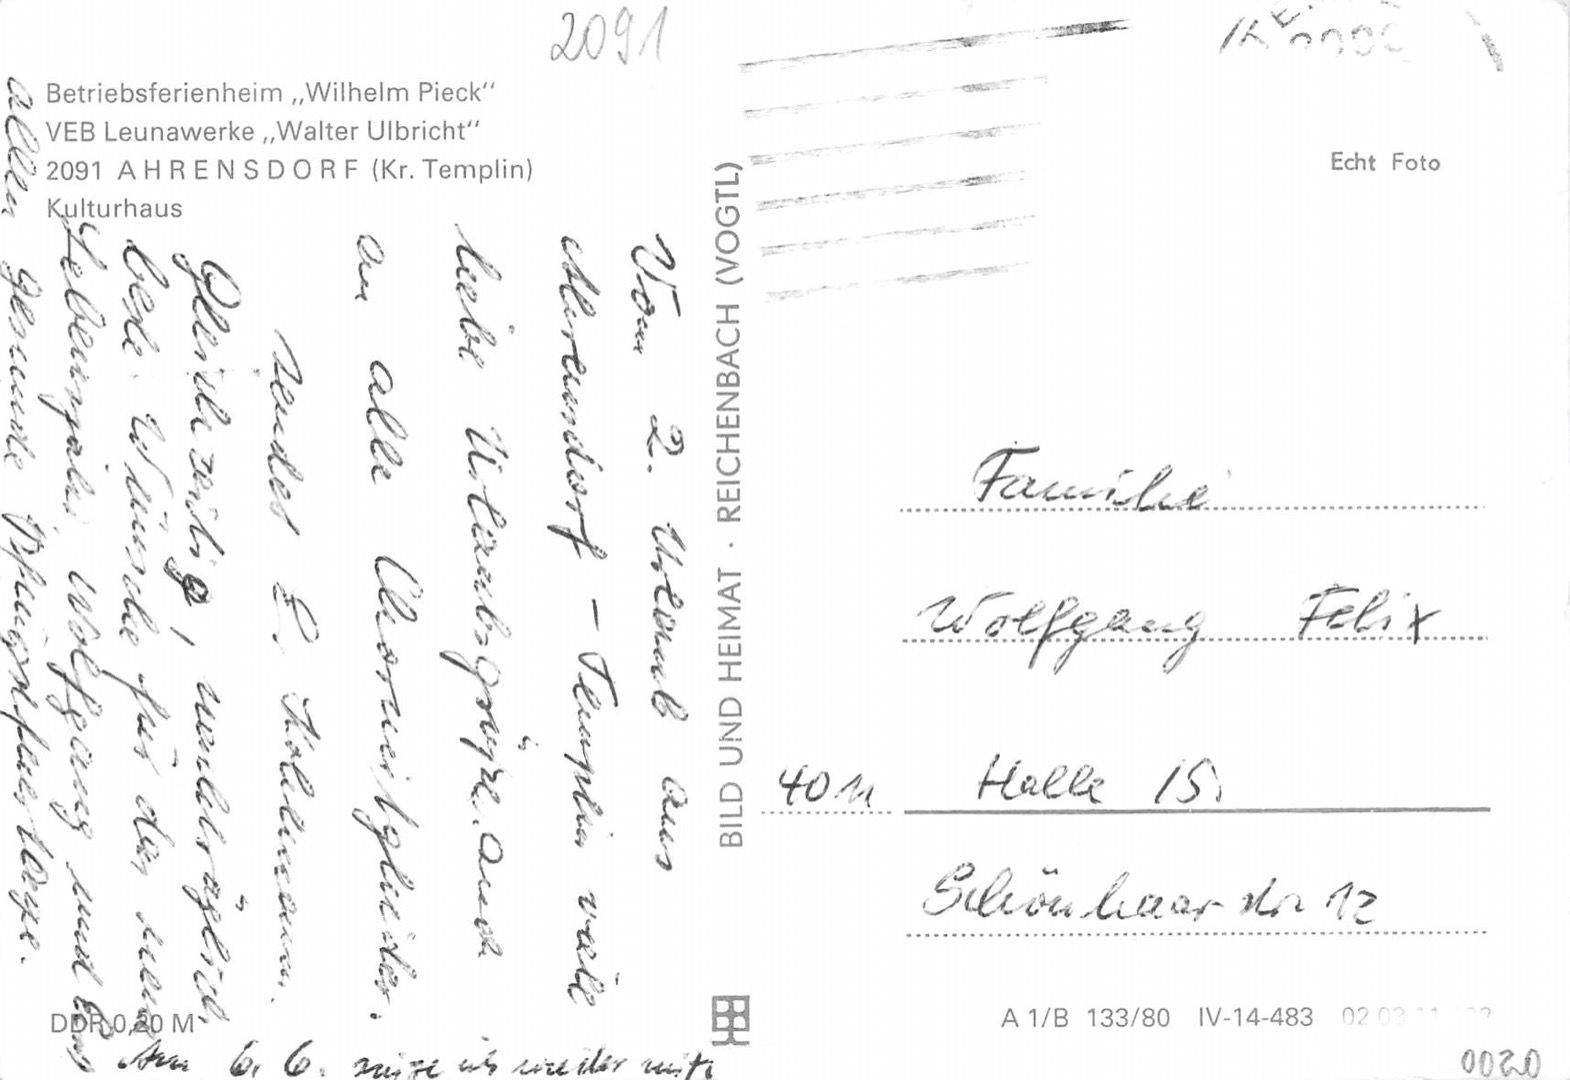 2091
Betriebsferienheim „Wilhelm Pieck“
VEB Leunawerke „Walter Ulbricht“
2091 AHRENSDORF (Kr. Templin)
Kulturhaus
Vom 2. Urlaub aus
Ahrensdorf – Templin viele
liebe Urlaubsgrüße. Auch
an alle Chormitglieder.
sendet E.
Gleichzeitig, nachträglich
beste Wünsche für das neue
Lebensjahr Wolfgang und Euch
allen gesunde Pfingstfeiertage.
Am 6. 6. singe ich wieder mit.
DDR 0,20 M
BILD UND HEIMAT · REICHENBACH (VOGTL)
Echt Foto
Familie
Wolfgang Felix
4011 Halle 15
12
A 1/B 133/80 IV-14-483 02 03
0020